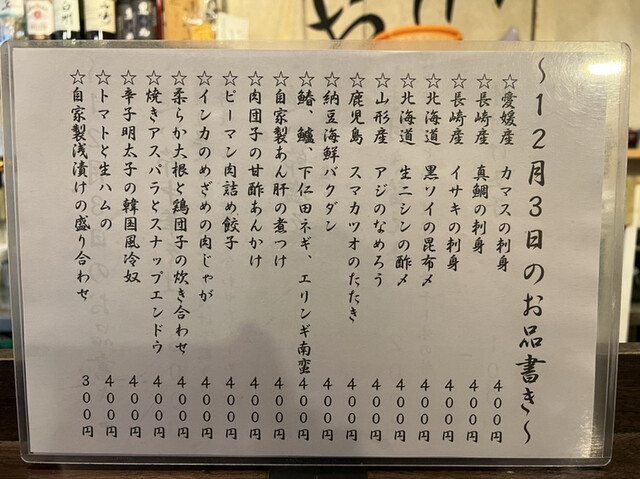 ～12月3日のお品書き～
☆愛媛産 カマスの刺身 400円
☆長崎産 真鯛の刺身 400円
☆長崎産 イサキの刺身 400円
☆北海道 黒ソイの昆布〆 400円
☆北海道 生ニシンの酢〆 400円
☆山形産 アジのなめろう 400円
☆鹿児島 スマカツオのたたき 400円
☆納豆海鮮バクダン 400円
☆鰆、鱸、下仁田ネギ、エリンギ南蛮 400円
☆自家製あん肝の煮つけ 400円
☆肉団子の甘酢あんかけ 400円
☆ピーマン肉詰め餃子 400円
☆インカのめざめの肉じゃが 400円
☆柔らか大根と鶏団子の炊き合わせ 400円
☆焼きアスパラとスナップエンドウ 400円
☆辛子明太子の韓国風冷奴 400円
☆トマトと生ハムの 400円
☆自家製浅漬けの盛り合わせ 300円